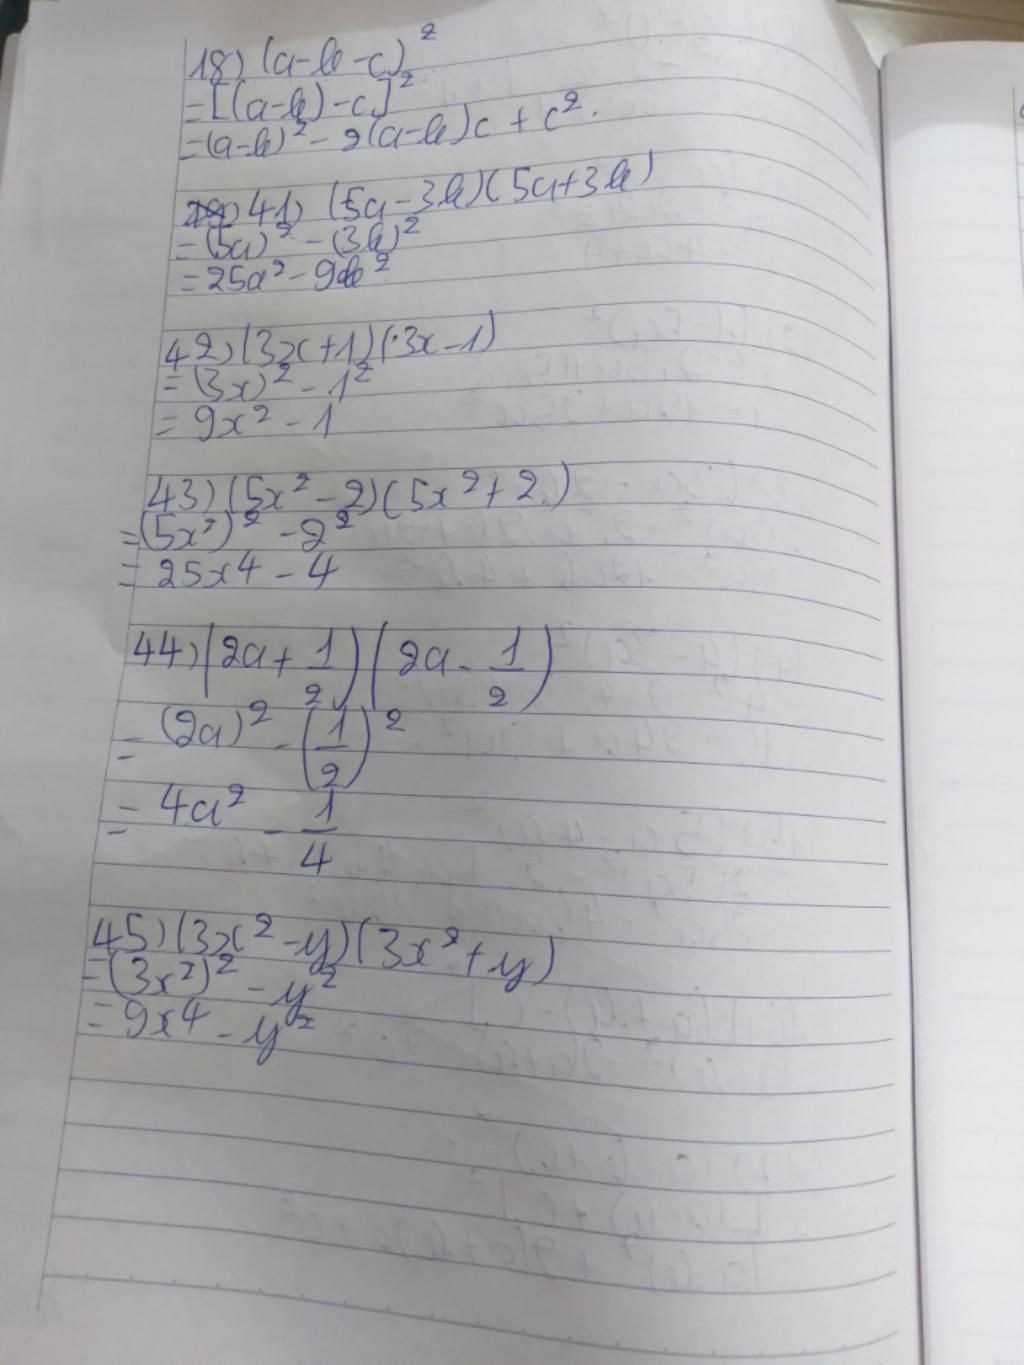 18) (a-b-c)²
= [(a-b)-c]²
= (a-b)² - 2(a-b)c + c².
41) (5a-3b)(5a+3b)
= (5a)² - (3b)²
= 25a² - 9b²
42) (3x+1)(3x-1)
= (3x)² - 1²
= 9x² - 1
43) (5x²-2)(5x²+2)
= (5x²)² - 2²
= 25x⁴ - 4
44) (2a + 1/2)(2a - 1/2)
= (2a)² - (1/2)²
= 4a² - 1/4
45) (3x²-y)(3x²+y)
= (3x²)² - y²
= 9x⁴ - y²